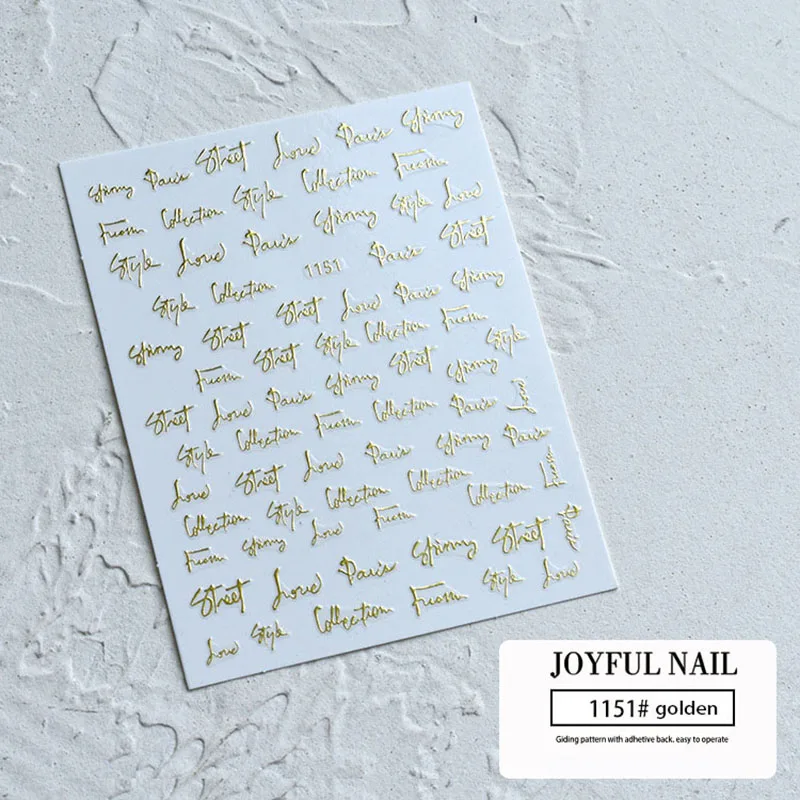 Shinny Paris Street Love Paris Shinny
From Collection Style Collection From
Style Love Paris Shinny Style Love
1151 Paris Street
Style Collection
Shinny Street Street Love Paris Shinny
From Street Style Collection From
Street Love Paris Shinny Street Shinny Style
Style Collection From Collection Paris Love
Love Street Love Paris Shinny Paris
Collection Style Collection Collection Collection From
From Shinny Love From
Street Love Paris Shinny Street Paris
Love Style Collection From Style Love
JOYFUL NAIL
1151# golden
Giding pattern with adhetive back. easy to operate